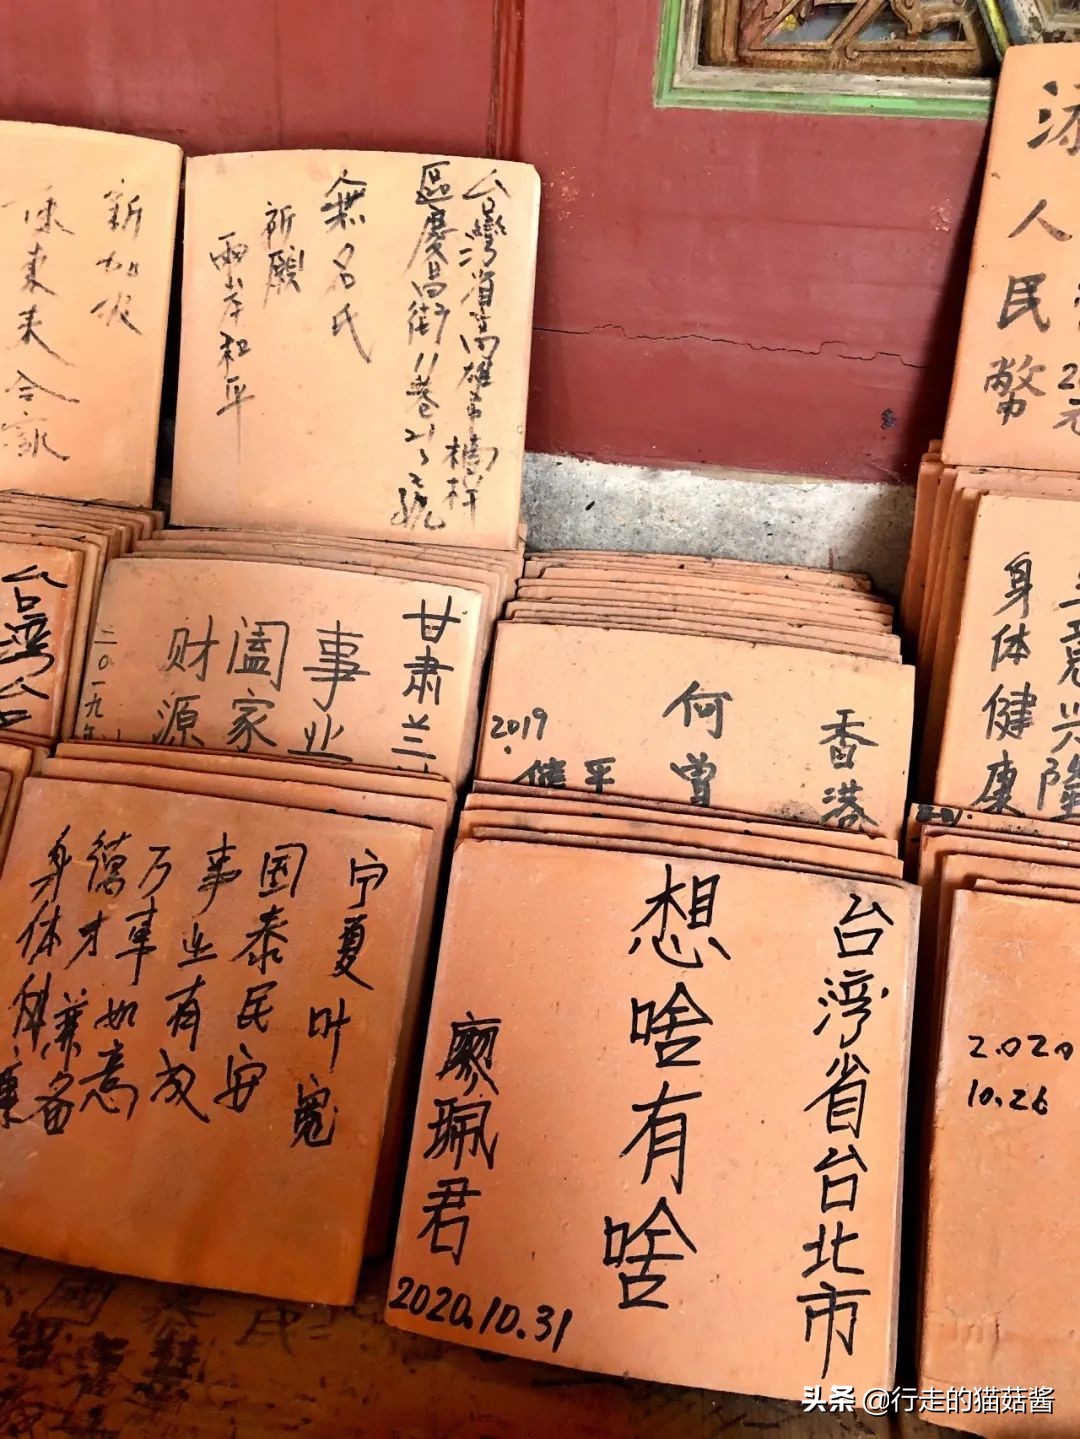 新加坡
陈东来合家
台灣省高雄市楠梓
區慶昌街11巷21之2號
無名氏
祈願
兩岸和平
添
人民幣
台灣台
甘肃兰
事业
阖家
财源
二〇一九年
香港
何曾
2019
身体健康
兴隆
宁夏叶宽
国泰民安
事业有成
万事如意
德才兼备
身体健康
台湾省台北市
想啥有啥
廖珮君
2020.10.31
2.020
10.26
头条 @行走的猫菇酱